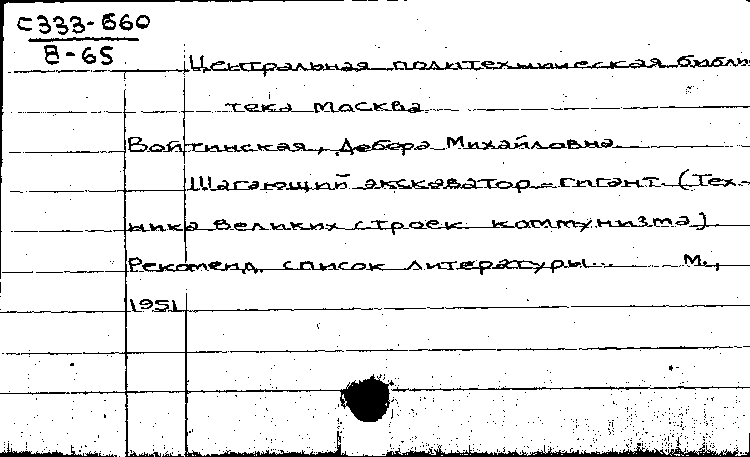 С333-660
В-65
Центральная политехническая библи
тека Москва
Войтинская, Дебора Михайловна
Шагающий экскаватор-гигант. (Тех-
ника великих строек коммунизма)
Рекоменд. список литературы... М.,
1951